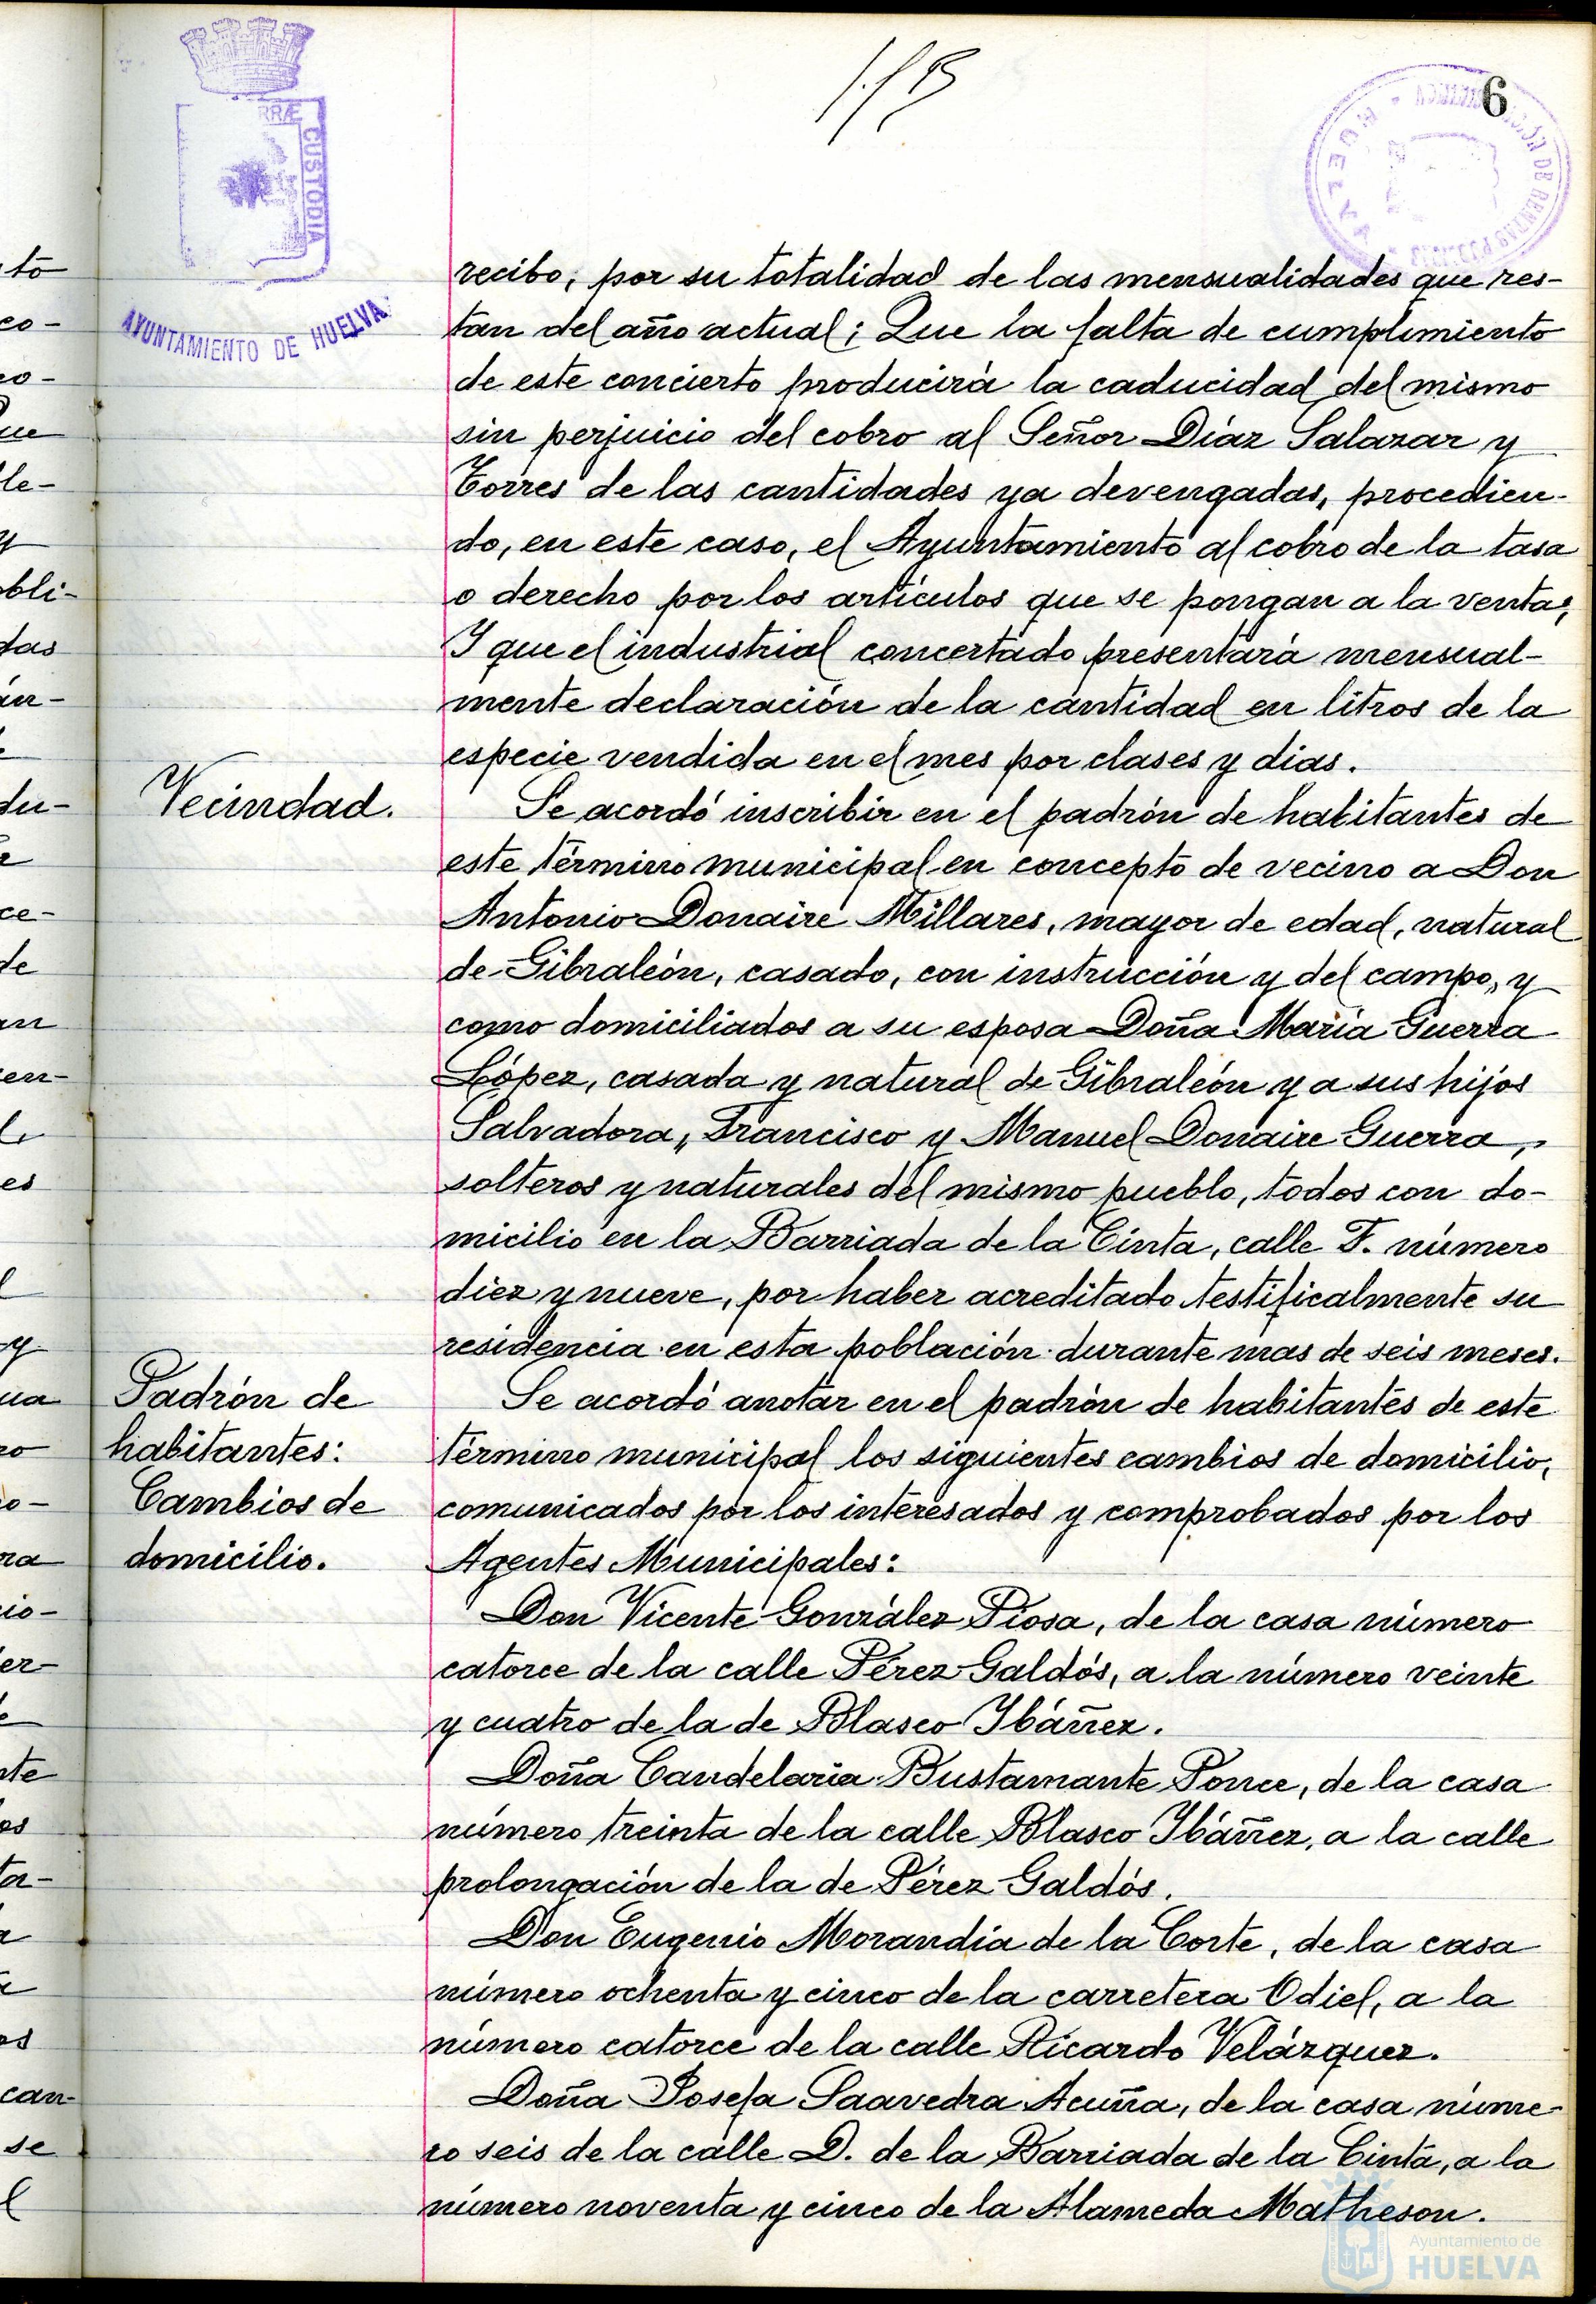 6
RRÆ CUSTODIA
AYUNTAMIENTO DE HUELVA
HUELVA
recibo; por su totalidad de las mensualidades que res-
tan del año actual; Que la falta de cumplimiento
de este concierto producirá la caducidad del mismo
sin perjuicio del cobro al Señor Díaz Salazar y
Torres de las cantidades ya devengadas, procedien-
do, en este caso, el Ayuntamiento al cobro de la tasa
o derecho por los artículos que se pongan a la venta;
Y que el industrial concertado presentará mensual-
mente declaración de la cantidad en litros de la
especie vendida en el mes por clases y dias.
Vecindad.
Se acordó inscribir en el padrón de habitantes de
este término municipal en concepto de vecino a Don
Antonio Donaire Millares, mayor de edad, natural
de Gibraleón, casado, con instrucción y del campo, y
como domiciliados a su esposa Doña María Guerra
López, casada y natural de Gibraleón y a sus hijos
Salvadora, Francisco y Manuel Donaire Guerra,
solteros y naturales del mismo pueblo, todos con do-
micilio en la Barriada de la Cinta, calle F. número
diez y nueve, por haber acreditado testificalmente su
residencia en esta población durante mas de seis meses.
Padrón de
habitantes:
Cambios de
domicilio.
Se acordó anotar en el padrón de habitantes de este
término municipal los siguientes cambios de domicilio,
comunicados por los interesados y comprobados por los
Agentes Municipales:
Don Vicente González Piosa, de la casa número
catorce de la calle Pérez Galdós, a la número veinte
y cuatro de la de Blasco Ibáñez.
Doña Candelaria Bustamante Ponce, de la casa
número treinta de la calle Blasco Ibáñez, a la calle
prolongación de la de Pérez Galdós.
Don Eugenio Morandia de la Corte, de la casa
número ochenta y cinco de la carretera Odiel, a la
número catorce de la calle Ricardo Velázquez.
Doña Josefa Saavedra Acuña, de la casa núme-
ro seis de la calle D. de la Barriada de la Cinta, a la
número noventa y cinco de la Alameda Matheson.
Ayuntamiento de
HUELVA